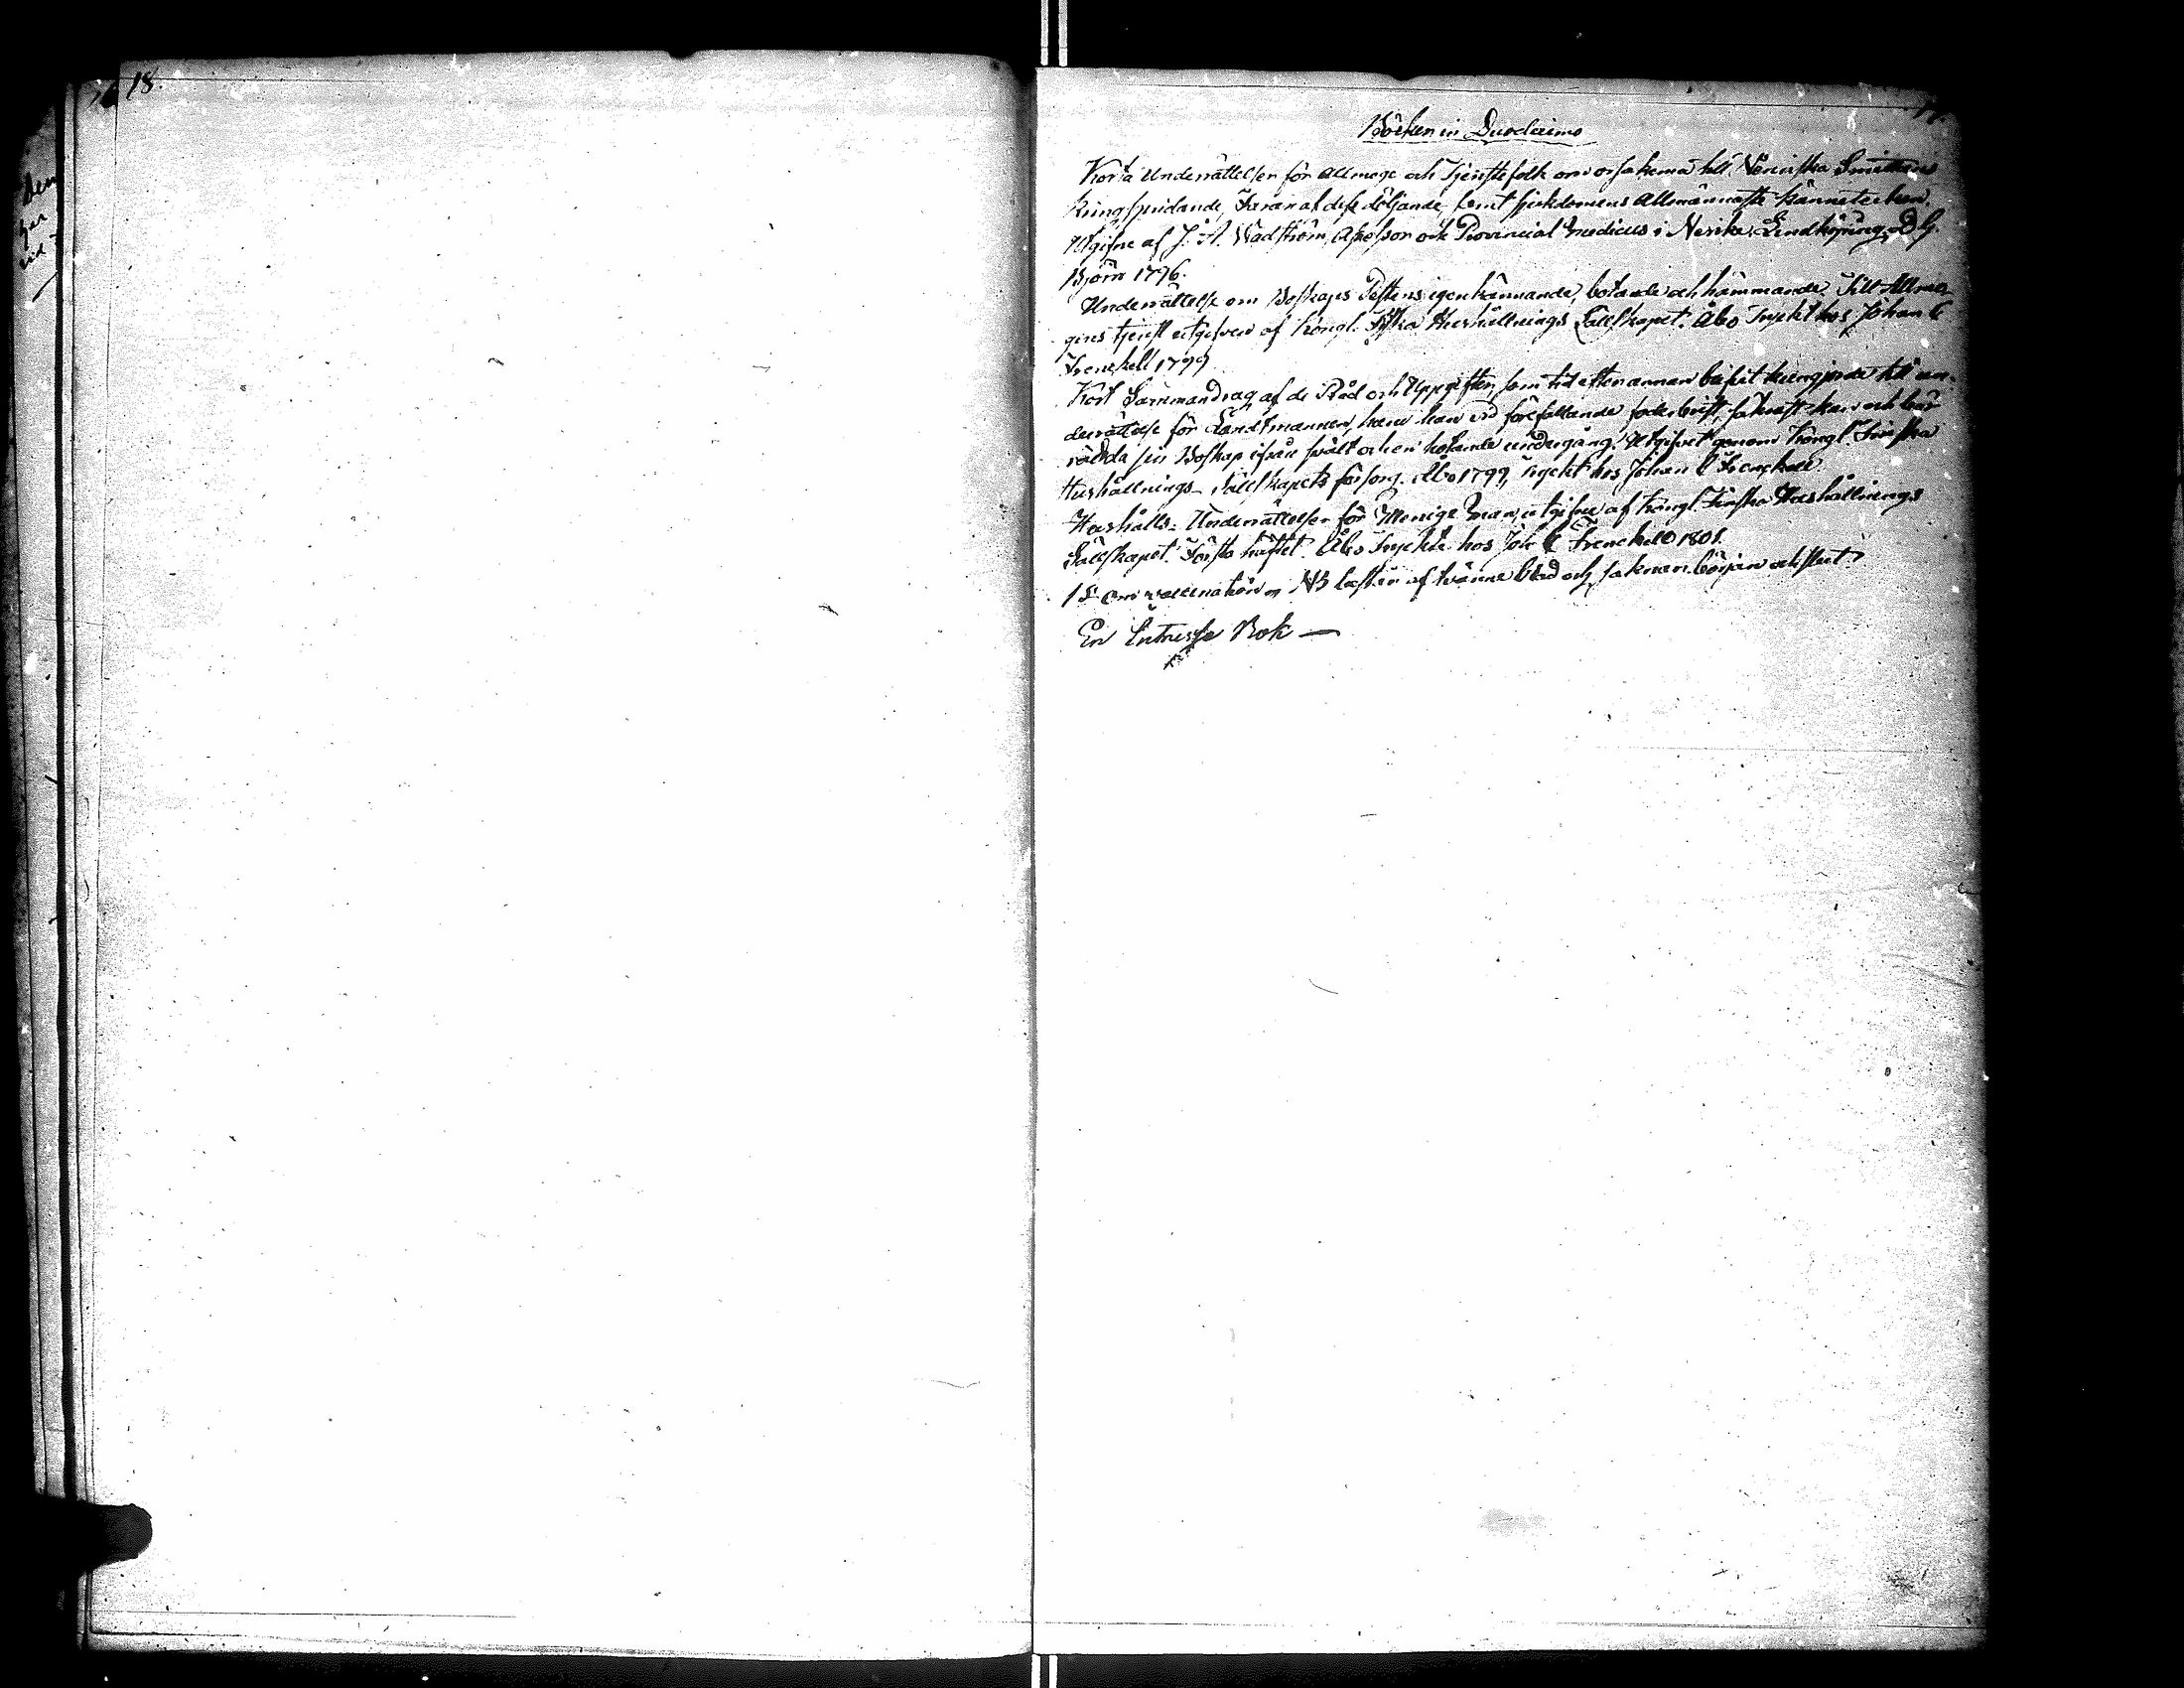 18.
den
Böcker in Duodecimo
Korta Underrättelser för Allmoge och Tjenstefolk om orsakerna till Veneriska Smittans
Kringspridande, Faran af dess döljande, samt sjukdomens Allmännaste kännetecken.
Utgifne af J. A. Wadström, Assessor och Provincial Medicus i Nerike. Lindköping, D. G.
Björn 1796.
Underrättelse om Boskaps Pestens igenkännande, botande och hämmande. Till Allmo-
gens tjenst utgifven af Kongl. Finska Hushållnings Sällskapet. Åbo Tryckt hos Johan C
Frenckell 1799
Kort Sammandrag af de Råd och Uppgifter, som tid efter annan blifvit kungjorda till un-
derrättelse för Landtmannen, huru han vid förefallande foderbrist, kan och bör
rädda sin Boskap ifrån svält och en hotande undergång. Utgifvet genom Kongl. Finska
Hushållnings-Sällskapets försorg. Åbo 1799, tryckt hos Johan C Frenckell
Hushålls-Underrättelser för Menige Man, utgifne af Kongl. Finska Hushållnings
Sällskapet. Första häftet. Åbo Tryckte hos Joh C Frenckell 1801.
1 St Om vaccination NB består af tvänne blad och saknar början och slut
En Intresse Bok —